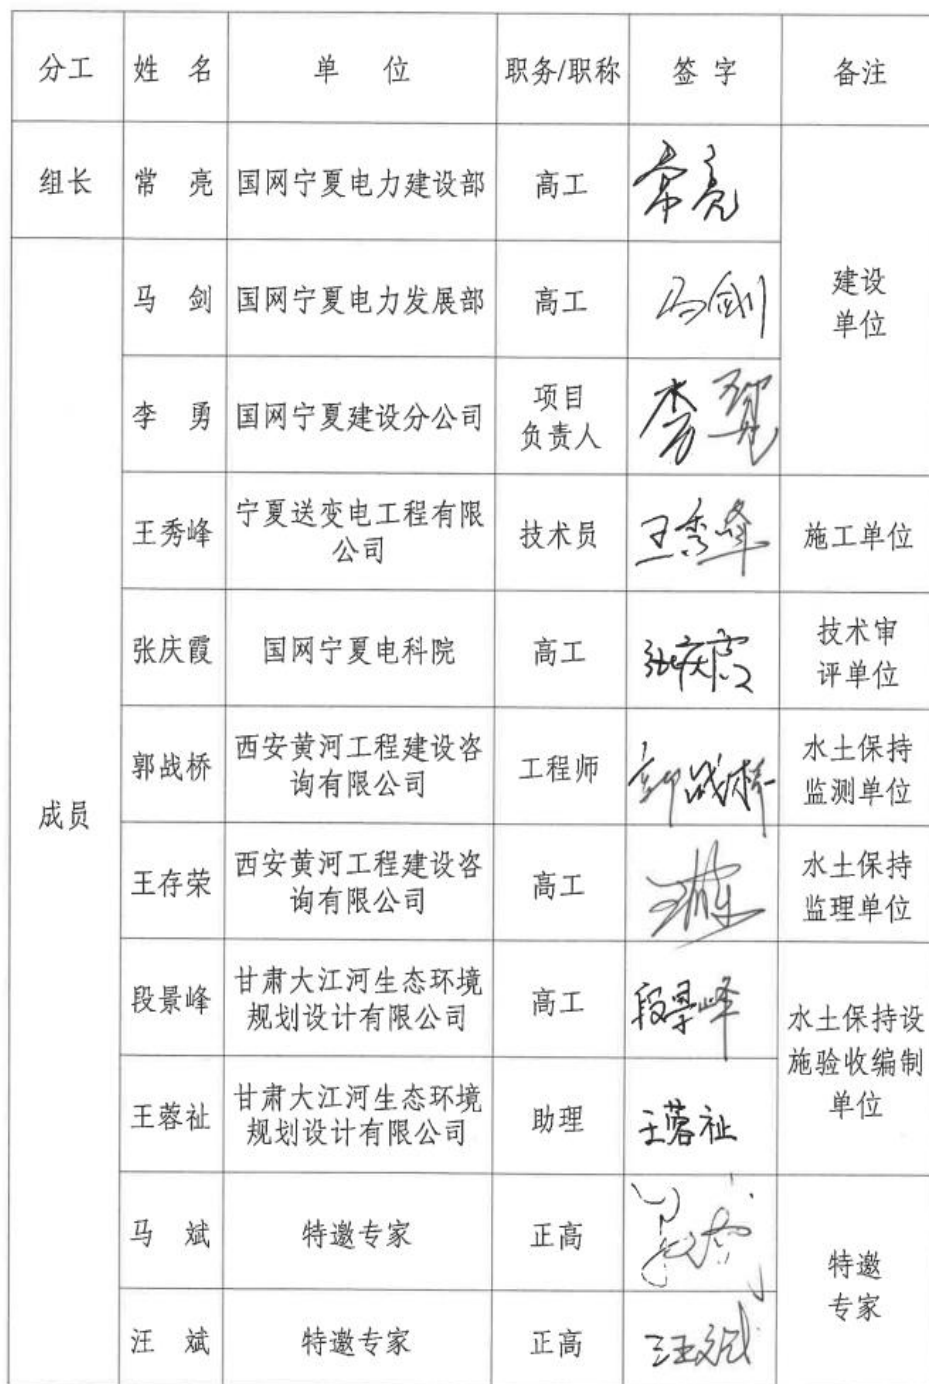 分工 姓 名 单 位 职务/职称 签 字 备注
组长 常 亮 国网宁夏电力建设部 高工 常亮
建设
单位
成员
马 剑 国网宁夏电力发展部 高工 马剑
李 勇 国网宁夏建设分公司 项目
负责人 李
王秀峰 宁夏送变电工程有限
公司 技术员 王秀峰 施工单位
张庆霞 国网宁夏电科院 高工 张庆霞 技术审
评单位
郭战桥 西安黄河工程建设咨
询有限公司 工程师 郭战桥 水土保持
监测单位
王存荣 西安黄河工程建设咨
询有限公司 高工 水土保持
监理单位
段景峰 甘肃大江河生态环境
规划设计有限公司 高工 段景峰
水土保持设
施验收编制
单位
王蓉祉 甘肃大江河生态环境
规划设计有限公司 助理 王蓉祉
马 斌 特邀专家 正高
特邀
专家
汪 斌 特邀专家 正高 汪斌